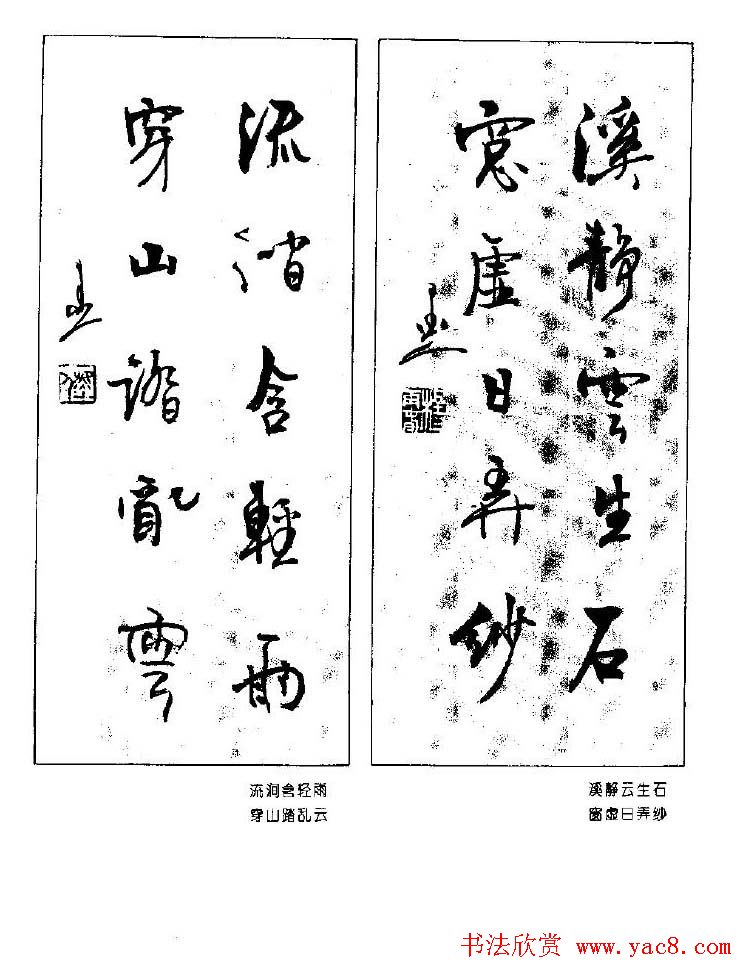 溪靜雲生石
窓虛日弄紗
流澗含輕雨
穿山踏亂雲
溪静云生石
窗虚日弄纱
流洞含轻雨
穿山踏乱云
书法欣赏 www.yac8.com